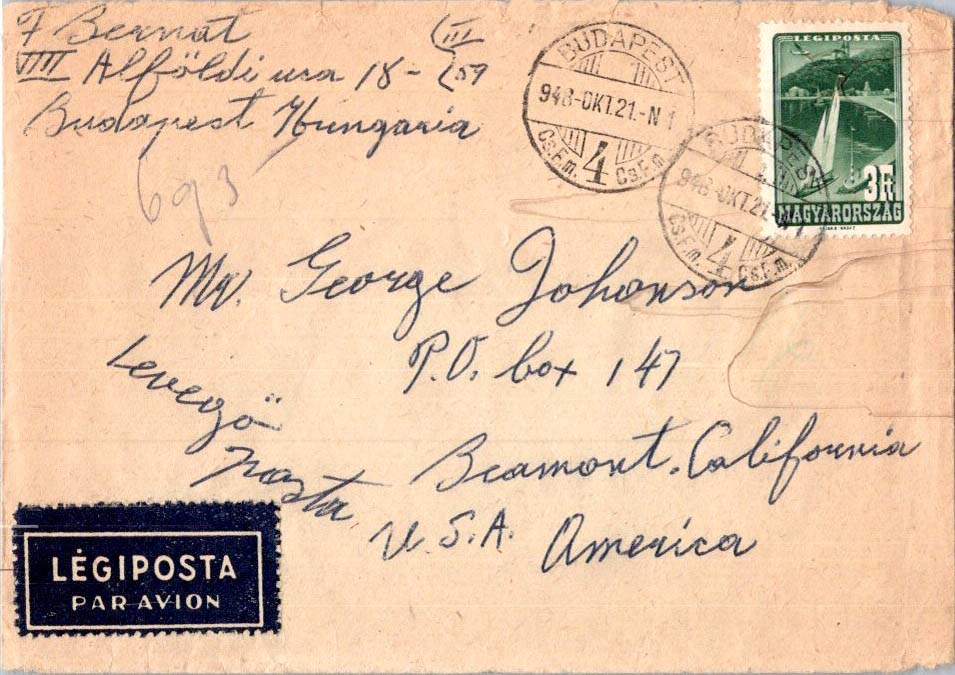 F Bernat (III
VIII Alföldi uca 18 - (59
Budapest Hungaria
693
BUDAPEST
948-OKT.21.-N 1
Cs.F.m. 4 Cs.F.m
LÉGIPOSTA
3Ft
MAGYARORSZÁG
BUDAPEST
948-OKT.21.-N 1
Cs.F.m. 4 Cs.F.m.
Mr. George Johanson
P.O. box 147
Beamont. California
U.S.A. America
Levegö
Posta
LÉGIPOSTA
PAR AVION